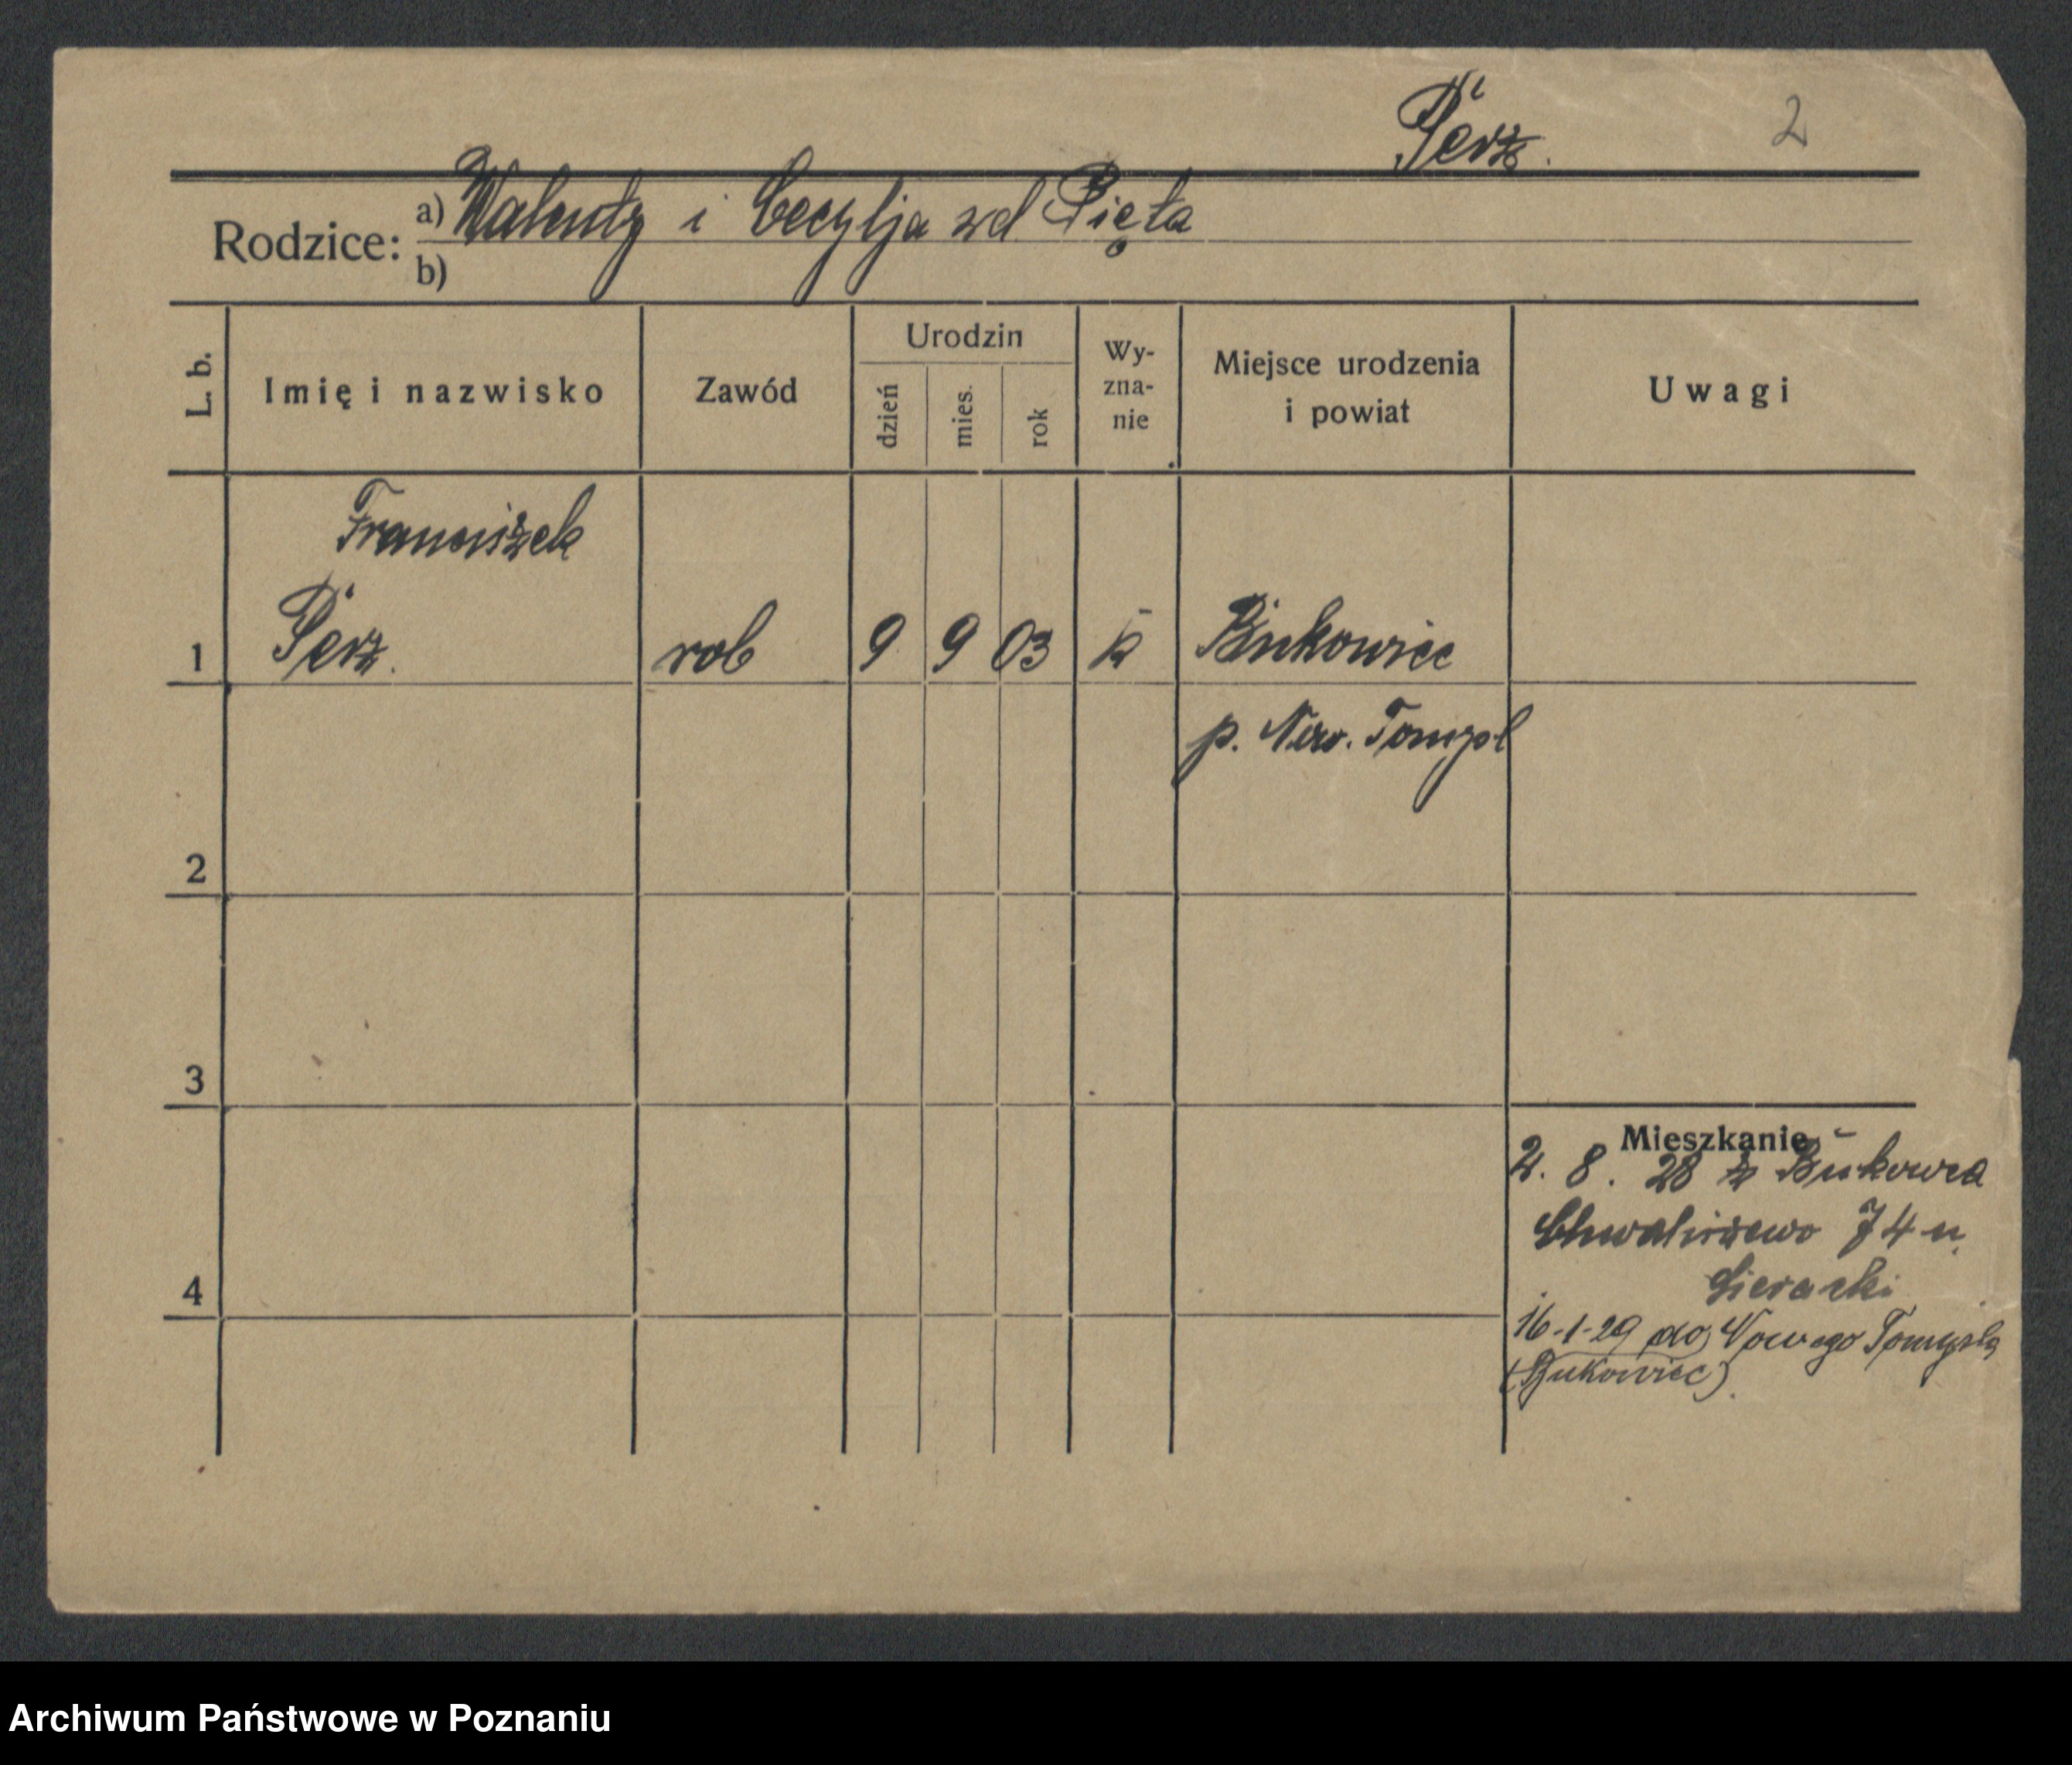 Perz.
2
Rodzice:
a) Walenty i Cecylja zd Pięta
b)
L. b.
Imię i nazwisko
Zawód
Urodzin
dzień
mies.
rok
Wy-
zna-
nie
Miejsce urodzenia
i powiat
Uwagi
Franciszek
1 Perz. rob 9 9 03 k Bukowiec
p. Now. Tomysl
2
3
4
Mieszkanie
2. 8. 28 z Bukowca
Chwaliszewo 74 u
Sieracki
16-1-29 do Nowego Tomyśla
(Bukowiec)
Archiwum Państwowe w Poznaniu